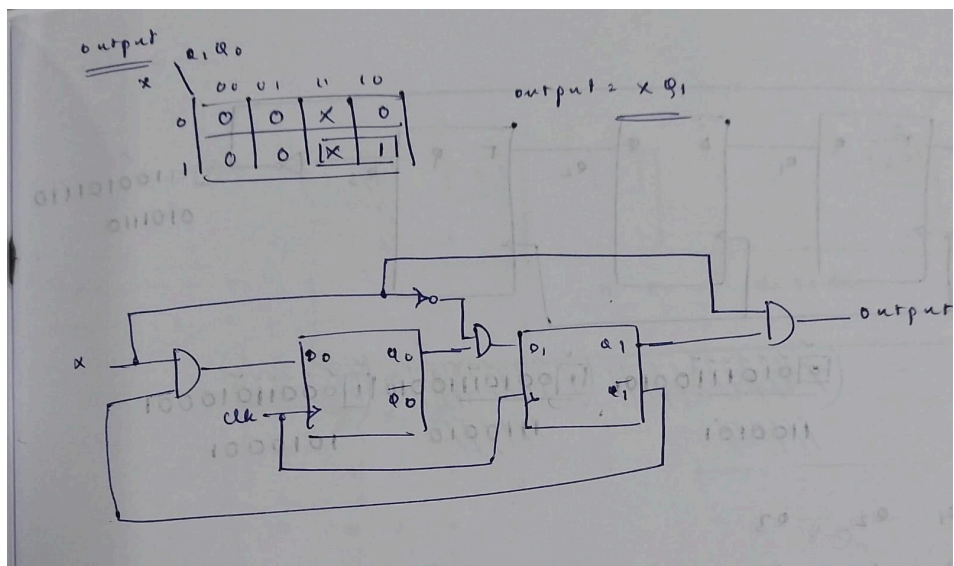 output
Q1 Q0
x
00 01 11 10
0 0 0 X 0
1 0 0 X 1
output = x Q1
x
D0 Q0
Q̅0
clk
D1 Q1
Q̅1
output